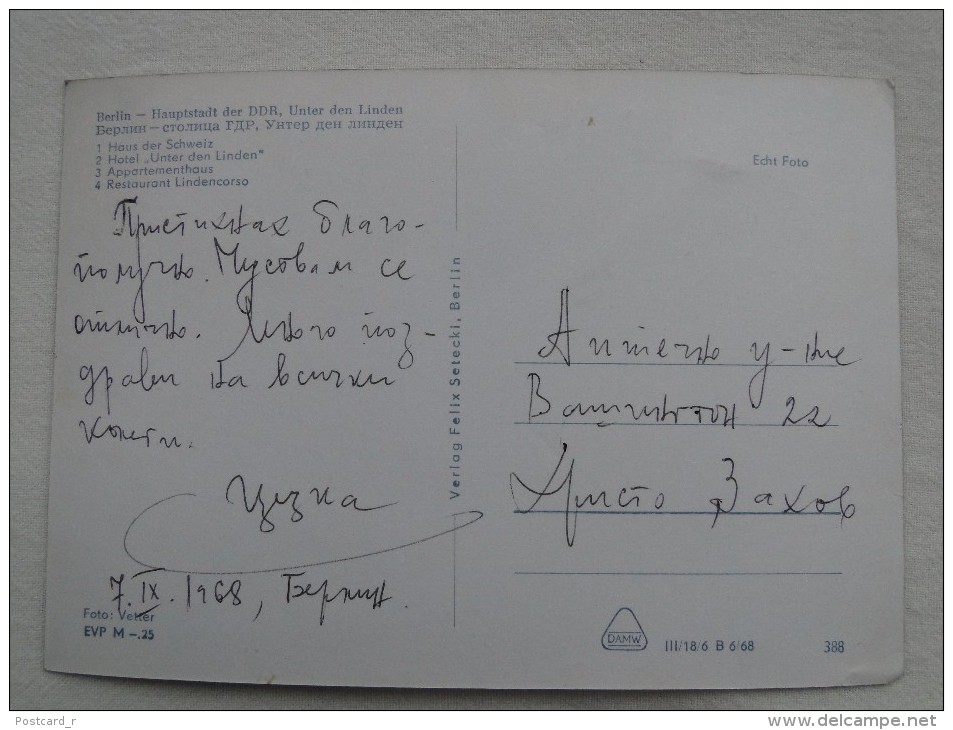 Berlin – Hauptstadt der DDR, Unter den Linden
Берлин – столица ГДР, Унтер ден линден
1 Haus der Schweiz
2 Hotel „Unter den Linden"
3 Appartementhaus
4 Restaurant Lindencorso
Echt Foto
Пристигнах благо-
получно. Чувствам се
отлично. Много поз-
драви на всички
колеги.
7.IX.1968, Берлин.
Foto: Vetter
EVP M –.25
Verlag Felix Setecki, Berlin
Ателие у-ние
Вашингтон 22
Христо Захов
DAMW
III/18/6 B 6/68
388
Postcard_r
www.delcampe.net